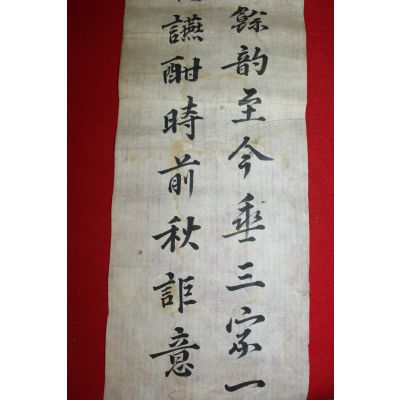 餘韵至今垂三宗一
讌酣時前秋詎意